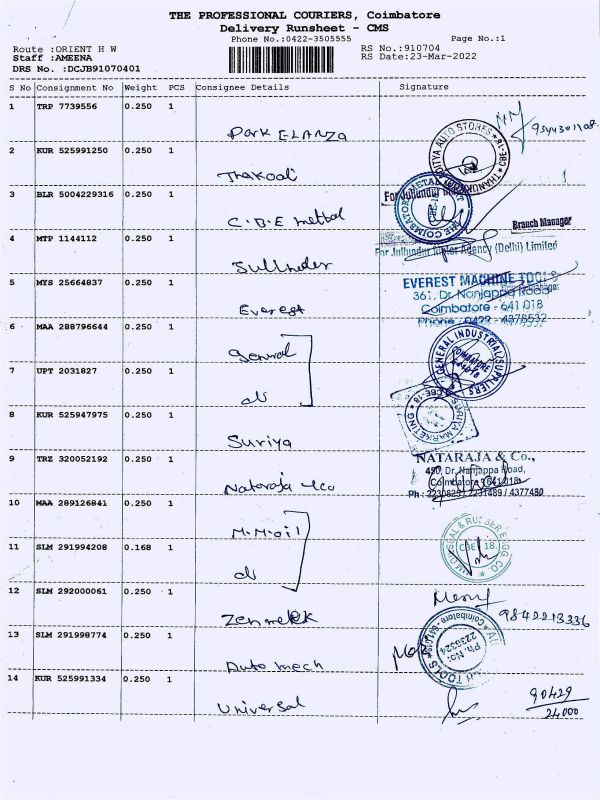 THE PROFESSIONAL COURIERS, Coimbatore
Delivery Runsheet - CMS
Phone No.:0422-3505555
Page No.:1
Route :ORIENT H W
RS No.:910704
Staff :AMEENA
RS Date:23-Mar-2022
DRS No. :DCJB91070401
S No Consignment No Weight PCS Consignee Details Signature
1 TRP 7739556 0.250 1
Park ELANZA
2 KUR 525991250 0.250 1
Thakoal
3 BLR 5004229316 0.250 1
C.B.E mettal
For Jullundur
Branch Manager
4 MTP 1144112 0.250 1
For Jullundur Motor Agency (Delhi) Limited
Jullunder
5 MYS 25664837 0.250 1
EVEREST MACHINE TOOLS
361, Dr. Nanjappa Road
Coimbatore - 641 018
Phone : 0422 - 4378532
Everest
6 MAA 288796644 0.250 1
General
GENERAL INDUSTRIAL SUPPLIERS
COIMBATORE
7 UPT 2031827 0.250 1
do
8 KUR 525947975 0.250 1
SURIYA MARKETING
CBE-18
Suriya
9 TRZ 320052192 0.250 1
NATARAJA & Co.,
490, Dr. Nanjappa Road,
Coimbatore - 641 018
Ph : 2230829 / 2231489 / 4377480
Nataraja &co
10 MAA 289126841 0.250 1
M.M.oil
11 SLM 291994208 0.168 1
CBE 18
do
12 SLM 292000061 0.250 1
9842213336
13 SLM 291998774 0.250 1
Ph. No:
2236324
TOOLS
Auto mech
14 KUR 525991334 0.250 1
Universal
90429
24000